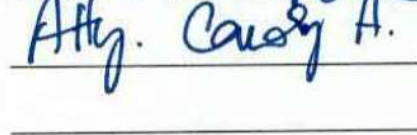 Atty. Candy A.